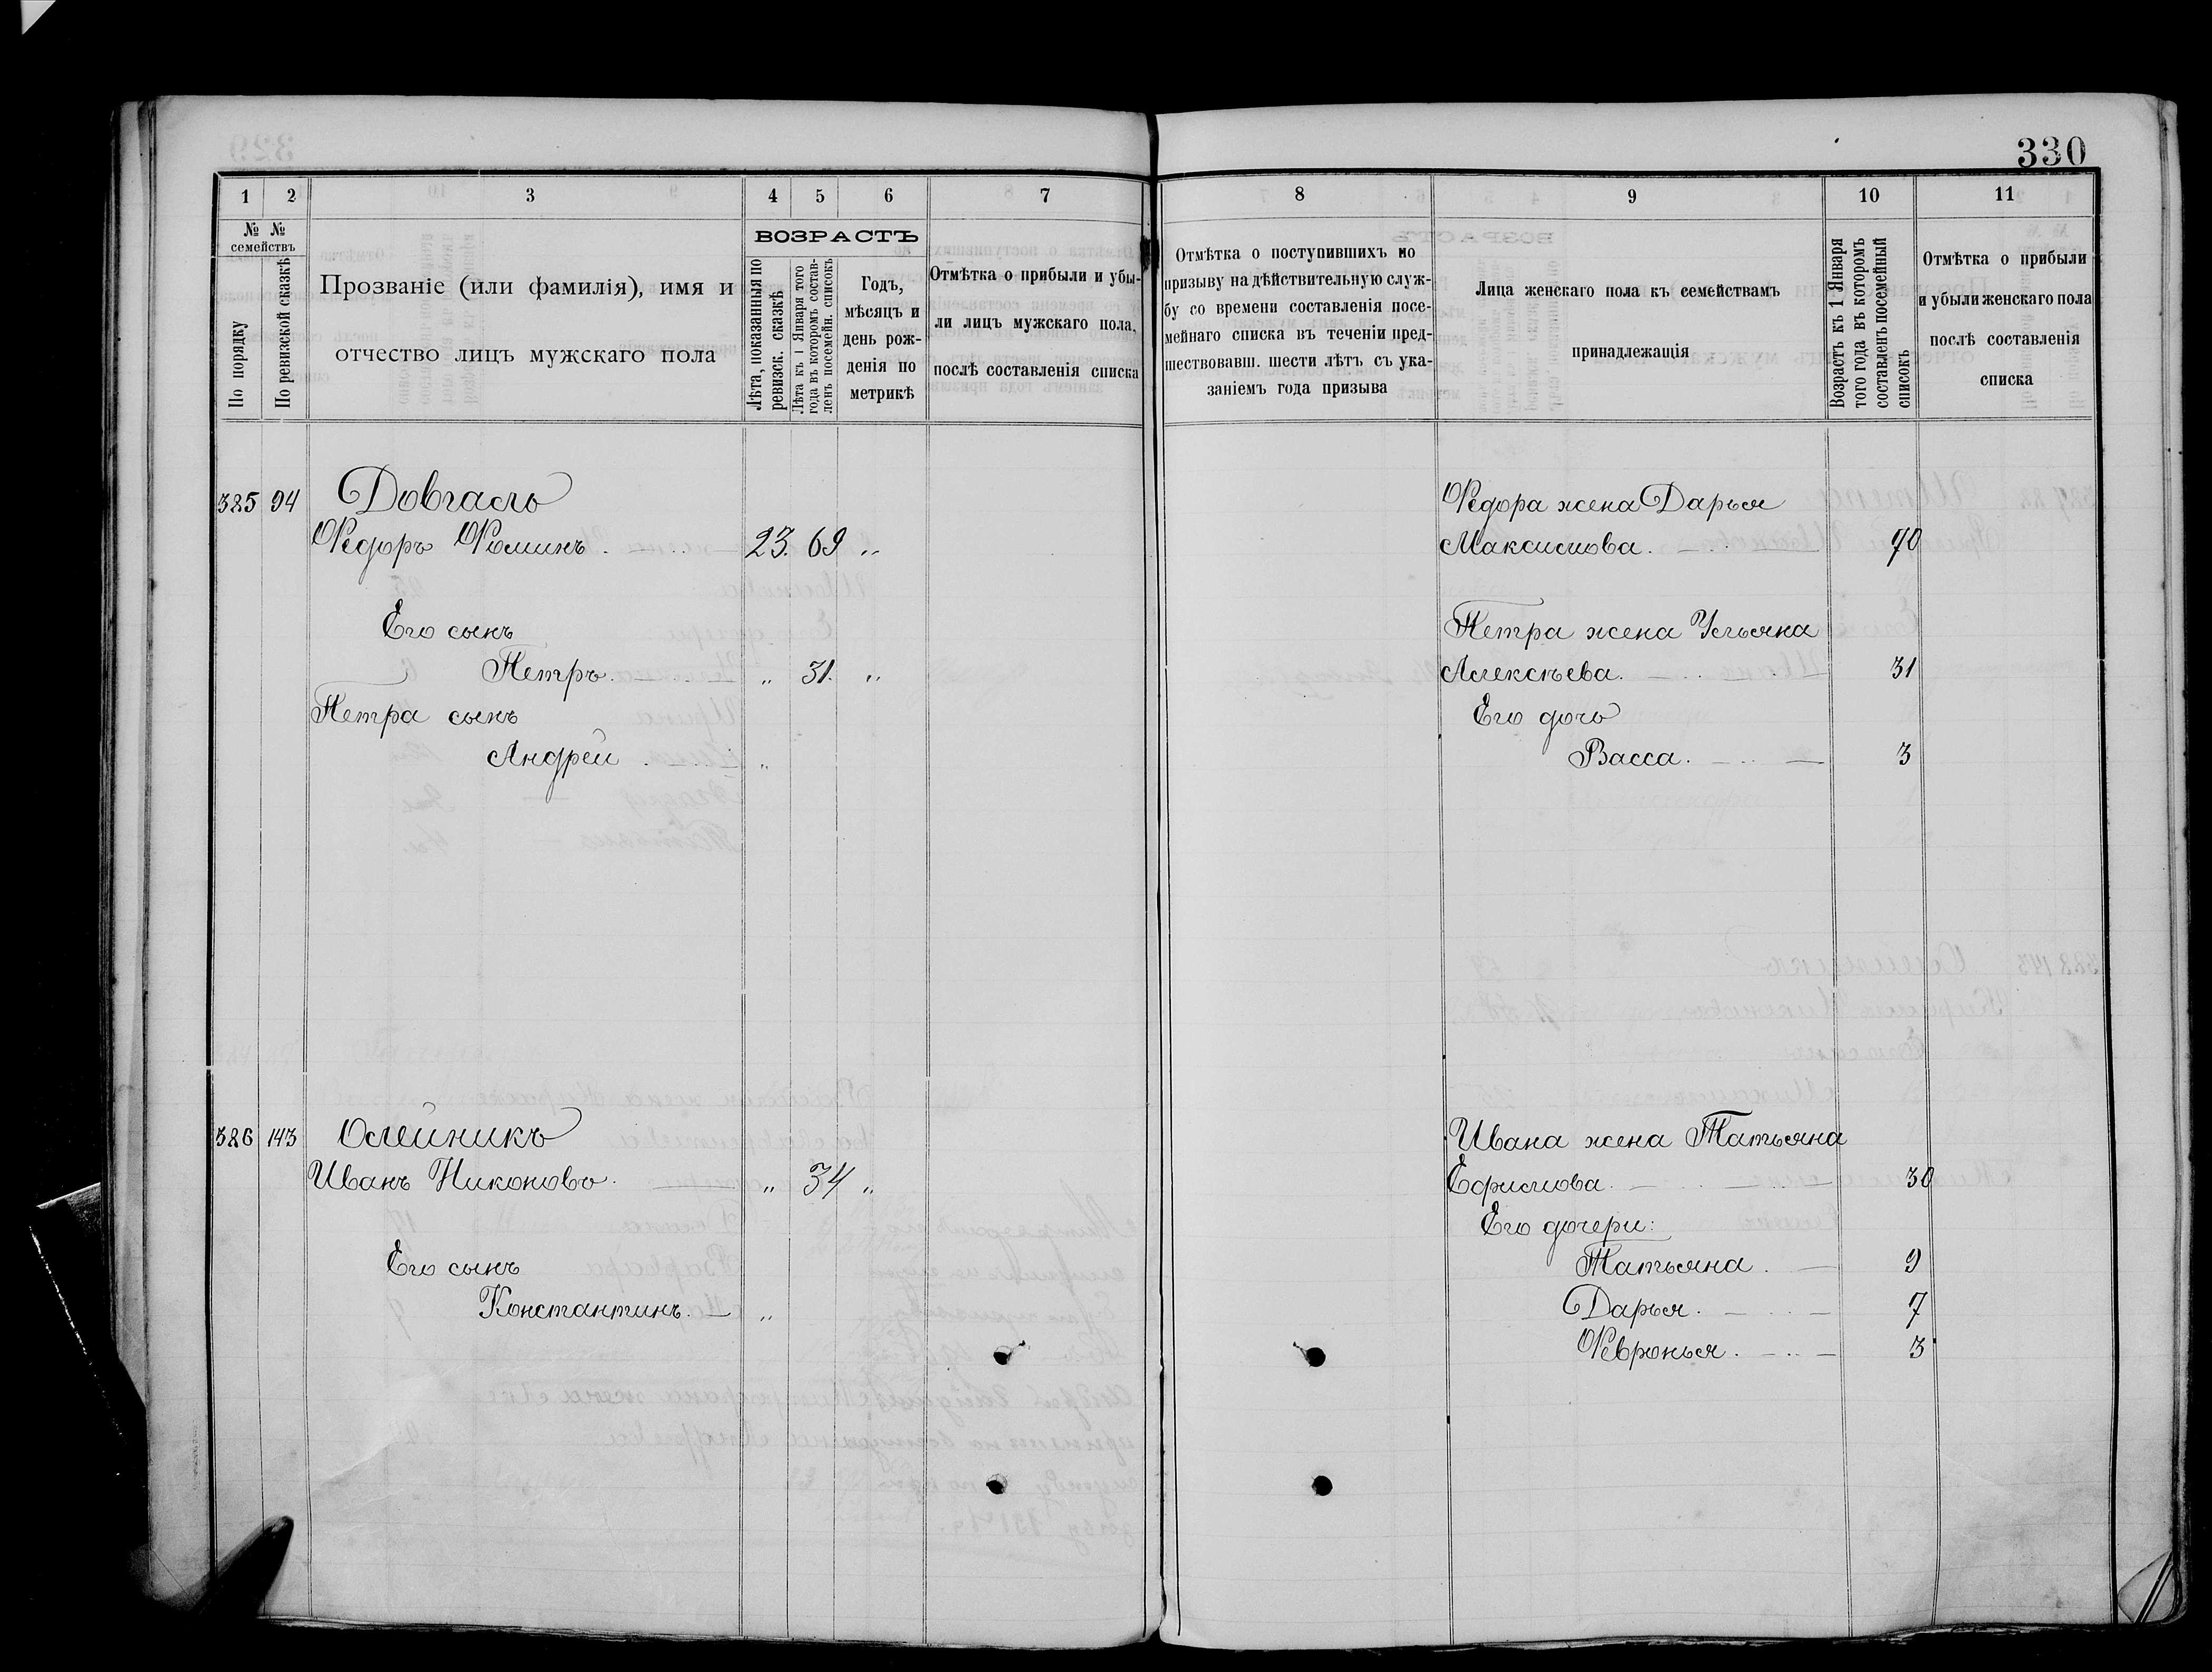 330
1 2 3 4 5 6 7
№ № семействъ
По порядку
По ревизской сказкѣ
Прозваніе (или фамилія), имя и
отчество лицъ мужскаго пола
ВОЗРАСТЪ
Лѣта, показанныя по
ревизск. сказкѣ
Лѣта къ 1 Января того
года въ которомъ состав-
ленъ посемейн. списокъ
Годъ,
мѣсяцъ и
день рож-
денія по
метрикѣ
Отмѣтка о прибыли и убы-
ли лицъ мужскаго пола,
послѣ составленія списка
385 94 Довгаль
Ѳедоръ Ѳоминъ. 23. 69 „
Его сынъ
Петръ. „ 31. „
Петра сынъ
Андрей. „
386 143 Олейникъ
Иванъ Никоновъ. „ 34 „
Его сынъ
Константинъ. „
8 9 10 11
Отмѣтка о поступившихъ по
призыву на дѣйствительную служ-
бу со времени составленія посе-
мейнаго списка въ теченіи пред-
шествовавш. шести лѣтъ съ ука-
заніемъ года призыва
Лица женскаго пола къ семействамъ
принадлежащія
Возрастъ къ 1 Января
того года въ которомъ
составленъ посемейный
списокъ
Отмѣтка о прибыли
и убыли женскаго пола
послѣ составленія
списка
Ѳедора жена Дарья
Максимова. 70
Петра жена Ульяна
Алексѣева. 31
Его дочь
Васса. 3
Ивана жена Татьяна
Ефимова. 30
Его дочери:
Татьяна. 9
Дарья. 7
Ѳевронья. 3